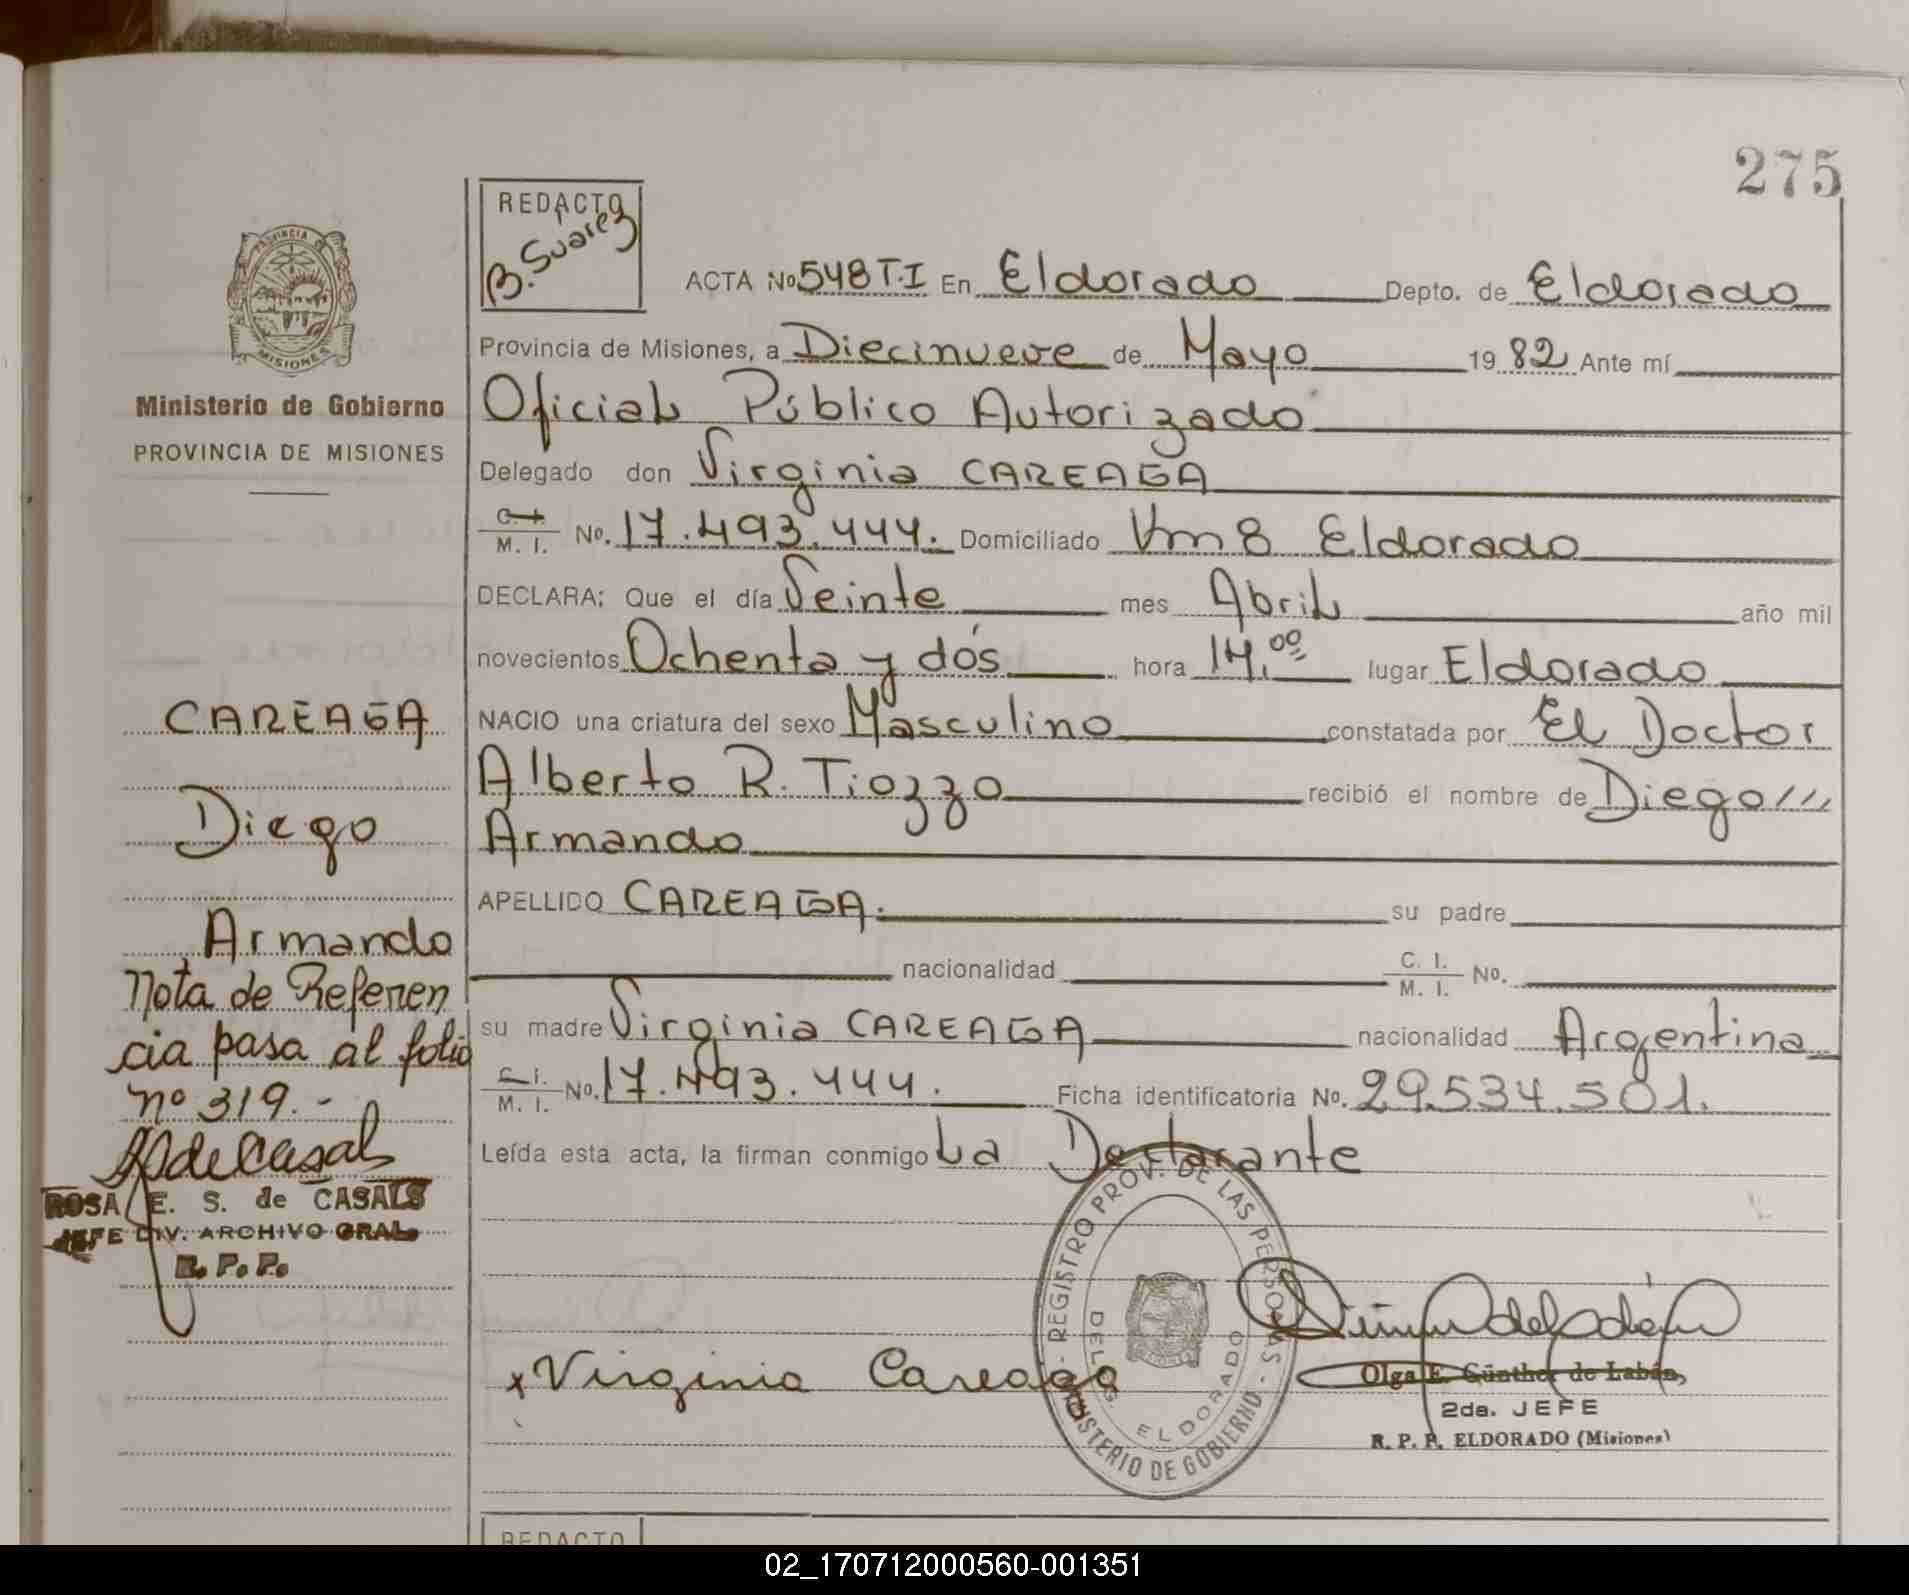 275
REDACTO
B. Suarez
ACTA No 548 T.I En Eldorado Depto. de Eldorado
Provincia de Misiones, a Diecinueve de Mayo 1982 Ante mí
Oficial Público Autorizado
Delegado don Virginia CAREAGA
C. I. M. I. No. 17.493.444. Domiciliado Km 8 Eldorado
DECLARA; Que el día Veinte mes Abril año mil
novecientos Ochenta y dós hora 14.00 lugar Eldorado
NACIO una criatura del sexo Masculino constatada por El Doctor
Alberto R. Tiozzo recibió el nombre de Diego///
Armando
APELLIDO CAREAGA. su padre
nacionalidad C. I. M. I. No.
su madre Virginia CAREAGA nacionalidad Argentina
C. I. M. I. No. 17.493.444. Ficha identificatoria No. 29.534.501.
Leída esta acta, la firman conmigo La Declarante
x Virginia Careaga
REGISTRO PROV. DE LAS PERSONAS - MINISTERIO DE GOBIERNO -
DELEG. ELDORADO
Olga E. Günther de Labán,
2da. JEFE
R. P. P. ELDORADO (Misiones)
PROVINCIA DE
MISIONES
Ministerio de Gobierno
PROVINCIA DE MISIONES
CAREAGA
Diego
Armando
Nota de Referen
cia pasa al folio
nº 319.-
ROSA E. S. de CASALS
JEFE DIV. ARCHIVO GRAL.
R. P. P.
REDACTO
02_170712000560-001351